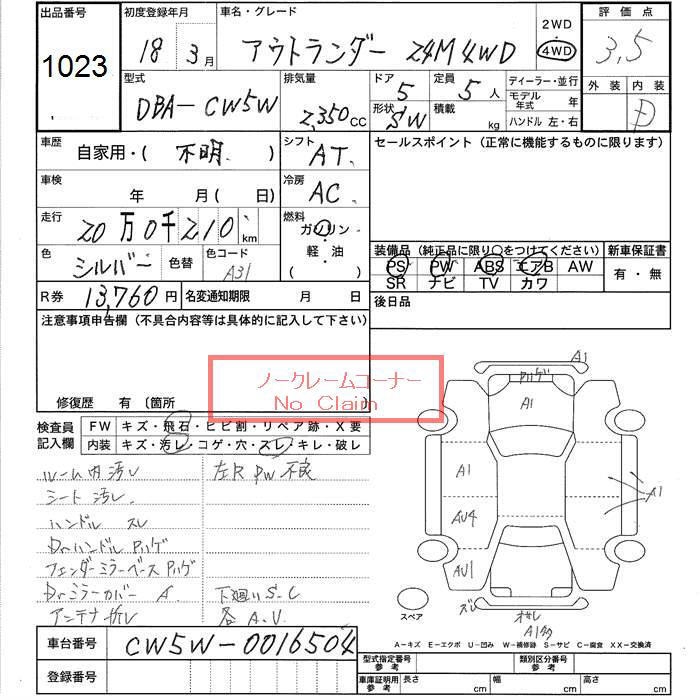 出品番号 初度登録年月 車名・グレード 2WD 評価点
1023 18年 3月 アウトランダー 24M 4WD 4WD 3.5
型式 排気量 ドア 定員 ディーラー・並行 外装 内装
DBA-CW5W 2,350cc 5 5人 モデル年式 年 D
形状 SW 積載 kg ハンドル 左・右
車歴 自家用・( 不明 ) シフト AT セールスポイント(正常に機能するものに限ります)
車検 年 月( 日) 冷房 AC
走行 20万0千210km 燃料 ガソリン
軽・油
( )
色 シルバー 色替 色コード A31
装備品(純正品に限り○をつけてください) 新車保証書
PS PW ABS エアB AW 有・無
SR ナビ TV カワ
R券 13,760円 名変通知期限 月 日 後日品
注意事項申告欄(不具合内容等は具体的に記入して下さい)
ノークレームコーナー
No Claim
修復歴 有 〔箇所
検査員記入欄 FW キズ・飛石・ヒビ割・リペア跡・X要
内装 キズ・汚レ・コゲ・穴・スレ・キレ・破レ
ルーム内汚レ 左R PW 不良
シート汚レ
ハンドル スレ
Drハンドル ハゲ
フェンダーミラーベース ハゲ
Drミラーカバー A 下廻り S.C
アンテナ折レ 各A.U
A1
ハゲ
A1
A1
A1
AU4
AU1
ズレ
スペア
A1多
A-キズ E-エクボ U-凹み W-補修跡 S-サビ C-腐食 XX-交換済
車台番号 CW5W-0016504
型式指定番号 参考 類別区分番号 参考
登録番号
車庫証明用 参考 長さ cm 幅 cm 高さ cm